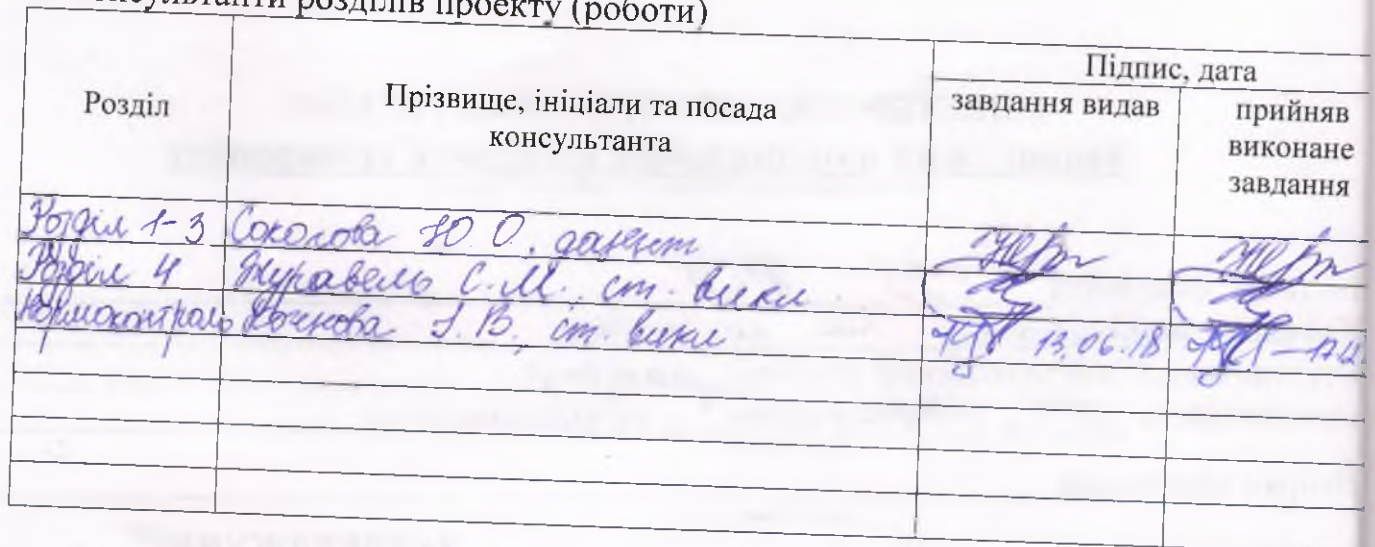 розділів проекту (роботи)
Розділ
Прізвище, ініціали та посада
консультанта
Підпис, дата
завдання видав
прийняв
виконане
завдання
Розділ 1-3 Соколова Ю О, доцент
Розділ 4 Журавель С.М., ст. викл.
Нормоконтроль І.В., ст. викл 13.06.18